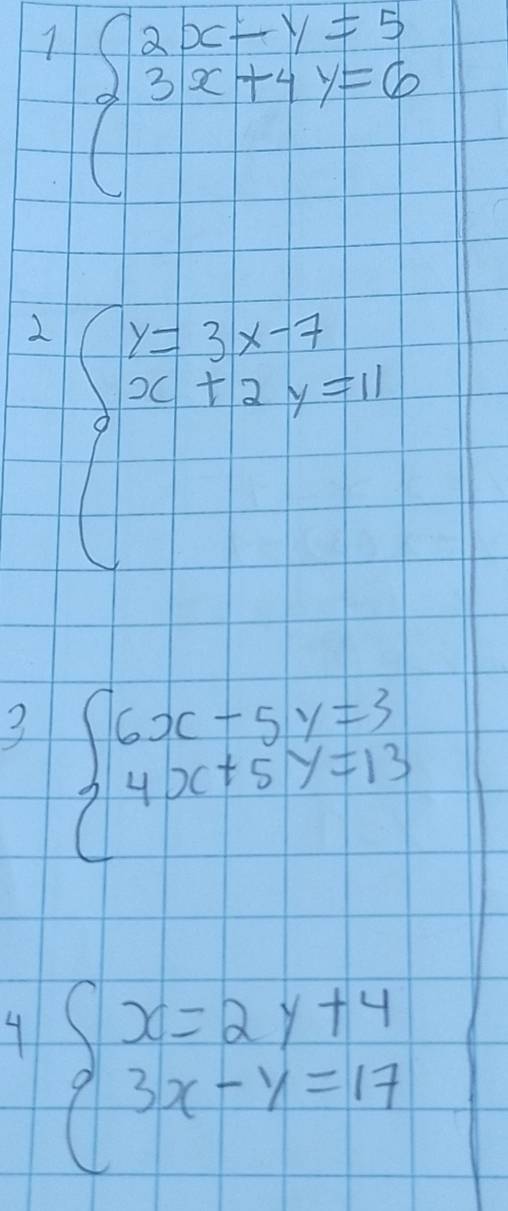 1 { 2x - y = 5
3x + 4y = 6
2 { y = 3x - 7
x + 2y = 11
3 { 6x - 5y = 3
4x + 5y = 13
4 { x = 2y + 4
3x - y = 17